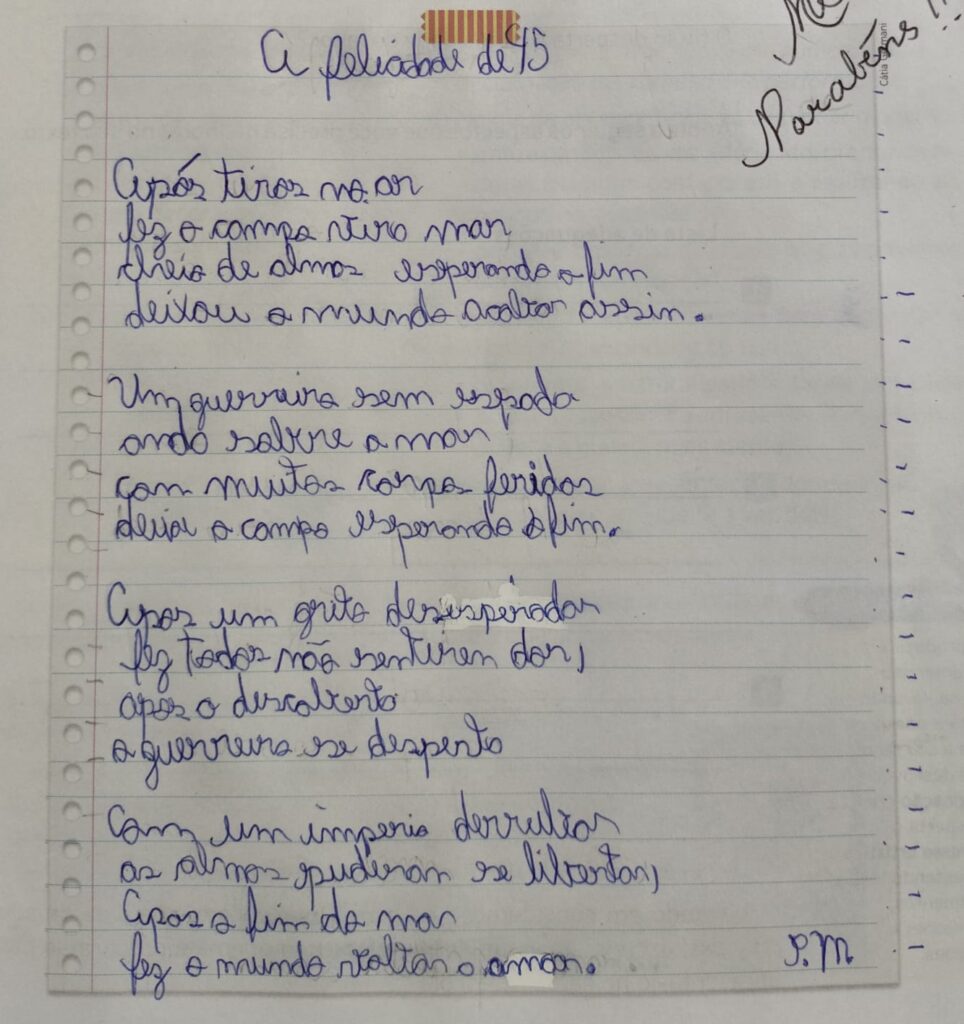 A felicidade de 45
Parabéns!!
Cátia
Após tiros no ar
fez o campo viro mar
cheio de almas esperando o fim
deixou o mundo acabar assim.
Um guerreiro sem espada
ando sobre o mar
com muitos corpos feridos
deixa o campo esperando o fim.
Apos um grito desesperador
fez todos não sentirem dor,
apos o descoberto
o guerreiro se desperto
Com um imperio derrubar
as almas puderam se libertar,
Apos o fim do mar
fez o mundo voltar a amar.
P.M.